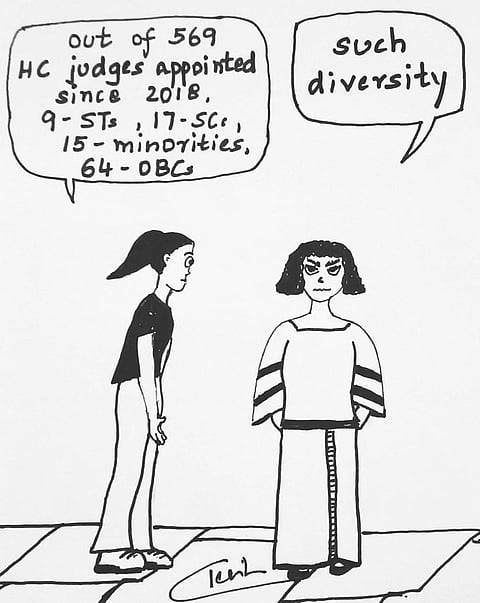 out of 569
HC judges appointed
since 2018.
9-STs, 17-SCs,
15-minorities,
64-OBCs
such
diversity